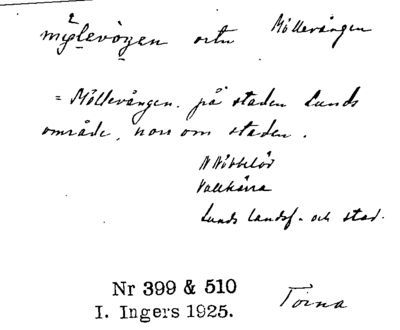 mølevåŋen ortn Möllevången
= Möllevången. på staden Lunds
område, norr om staden.
N Nöbbelöv
Vallkärra
Lunds landsf. och stad.
Nr 399 & 510
I. Ingers 1925.
Torna